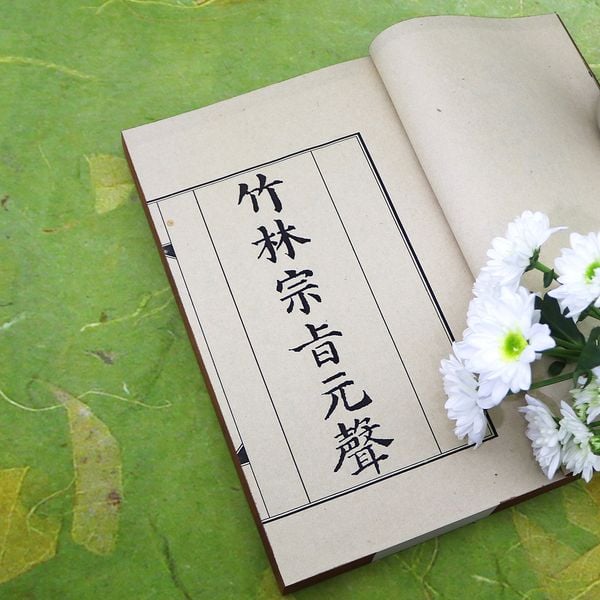 竹林宗旨元聲